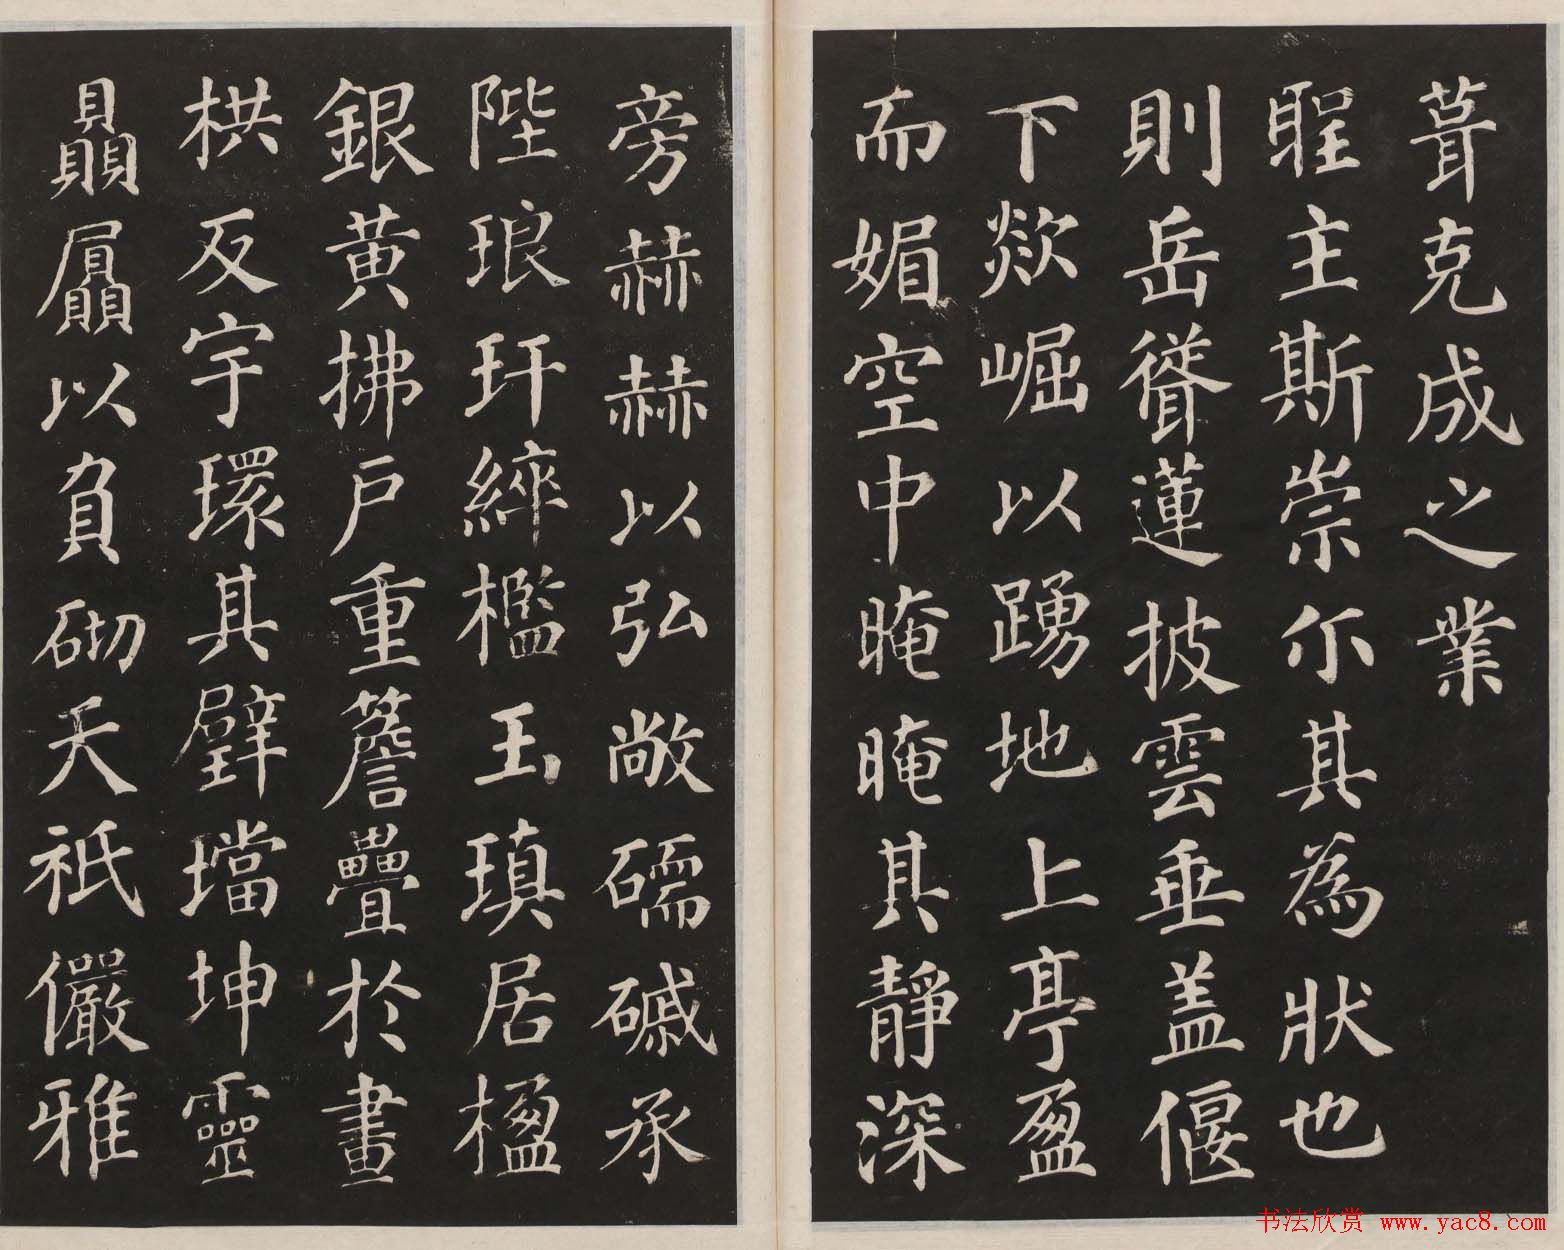 葺克成之業
聖主斯崇尒其為狀也
則岳聳蓮披雲垂盖偃
下欻崛以踴地上亭盈
而媚空中晻晻其靜深
旁赫赫以弘敞礝磩承
陛琅玕綷檻玉瑱居楹
銀黃拂戶重簷疊於畫
栱反宇環其璧璫坤靈
贔屭以負砌天祇儼雅
书法欣赏 www.yac8.com